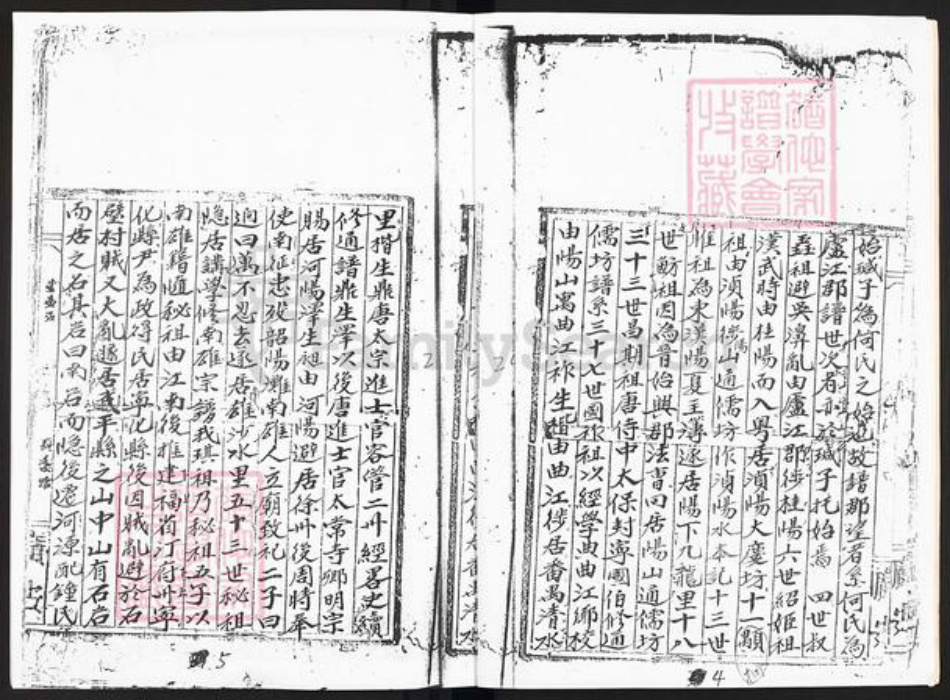 始瑊子為何氏之始也故譜郡望者系何氏為
廬江郡譜世次者亦於瑊子托始焉 四世叔
鑫祖避吳濞亂由廬江郡徙桂陽六世紹姬祖
漢武時由桂陽而入粤居湞陽大慶坊十一顒
祖由湞陽徙山通儒坊作湞陽水本記十三世
惟祖為東漢陽夏主簿遂居陽下九龍里十八
世魴祖因為晋始興郡法曹回居陽山通儒坊
三十三世昌期祖唐侍中太保封寧國伯修通
儒坊譜系三十七世國祚祖以經學由曲江鄉校
由陽山寓曲江祚生楷由曲江徙居番禺清水
里楷生鼎唐太宗進士官容管二卅經畧史續
修通譜鼎生澤以後唐進士官太常寺鄉明宗
賜居河陽澤生昶由河陽避居徐州後周時奉
使南征忠歿韶陽灘南雄人立廟致祀二子曰
逈曰萬不忍去遂居雄沙水里五十三世秘祖
隱居講學修南雄宗譜我琪祖乃秘祖五子以
南雄籍隨秘祖由江南後推建福省汀府卅寧
化縣尹為政得民居寧化縣後因賊亂避於石
壁村賊又大亂遂居武平縣之山中山有石岩
而居之名其岩曰南岩而隱後遷河源配鍾氏
4
5